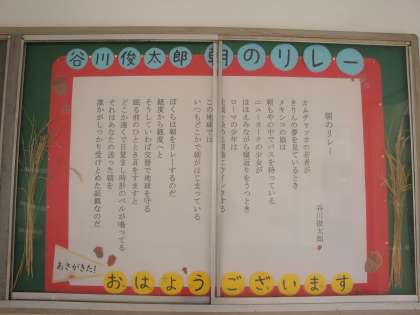 谷川俊太郎 朝のリレー
朝のリレー
谷川俊太郎
カムチャツカの若者が
きりんの夢を見ているとき
メキシコの娘は
朝もやの中でバスを待っている
ニューヨークの少女が
ほほえみながら寝返りをうつとき
ローマの少年は
この地球では
いつもどこかで朝がはじまっている
ぼくらは朝をリレーするのだ
経度から経度へと
そうしていわば交替で地球を守る
眠る前のひととき耳をすますと
どこか遠くで目覚時計のベルが鳴ってる
それはあなたの送った朝を
誰かがしっかりと受けとめた証拠なのだ
あさがきた!
おはようございます